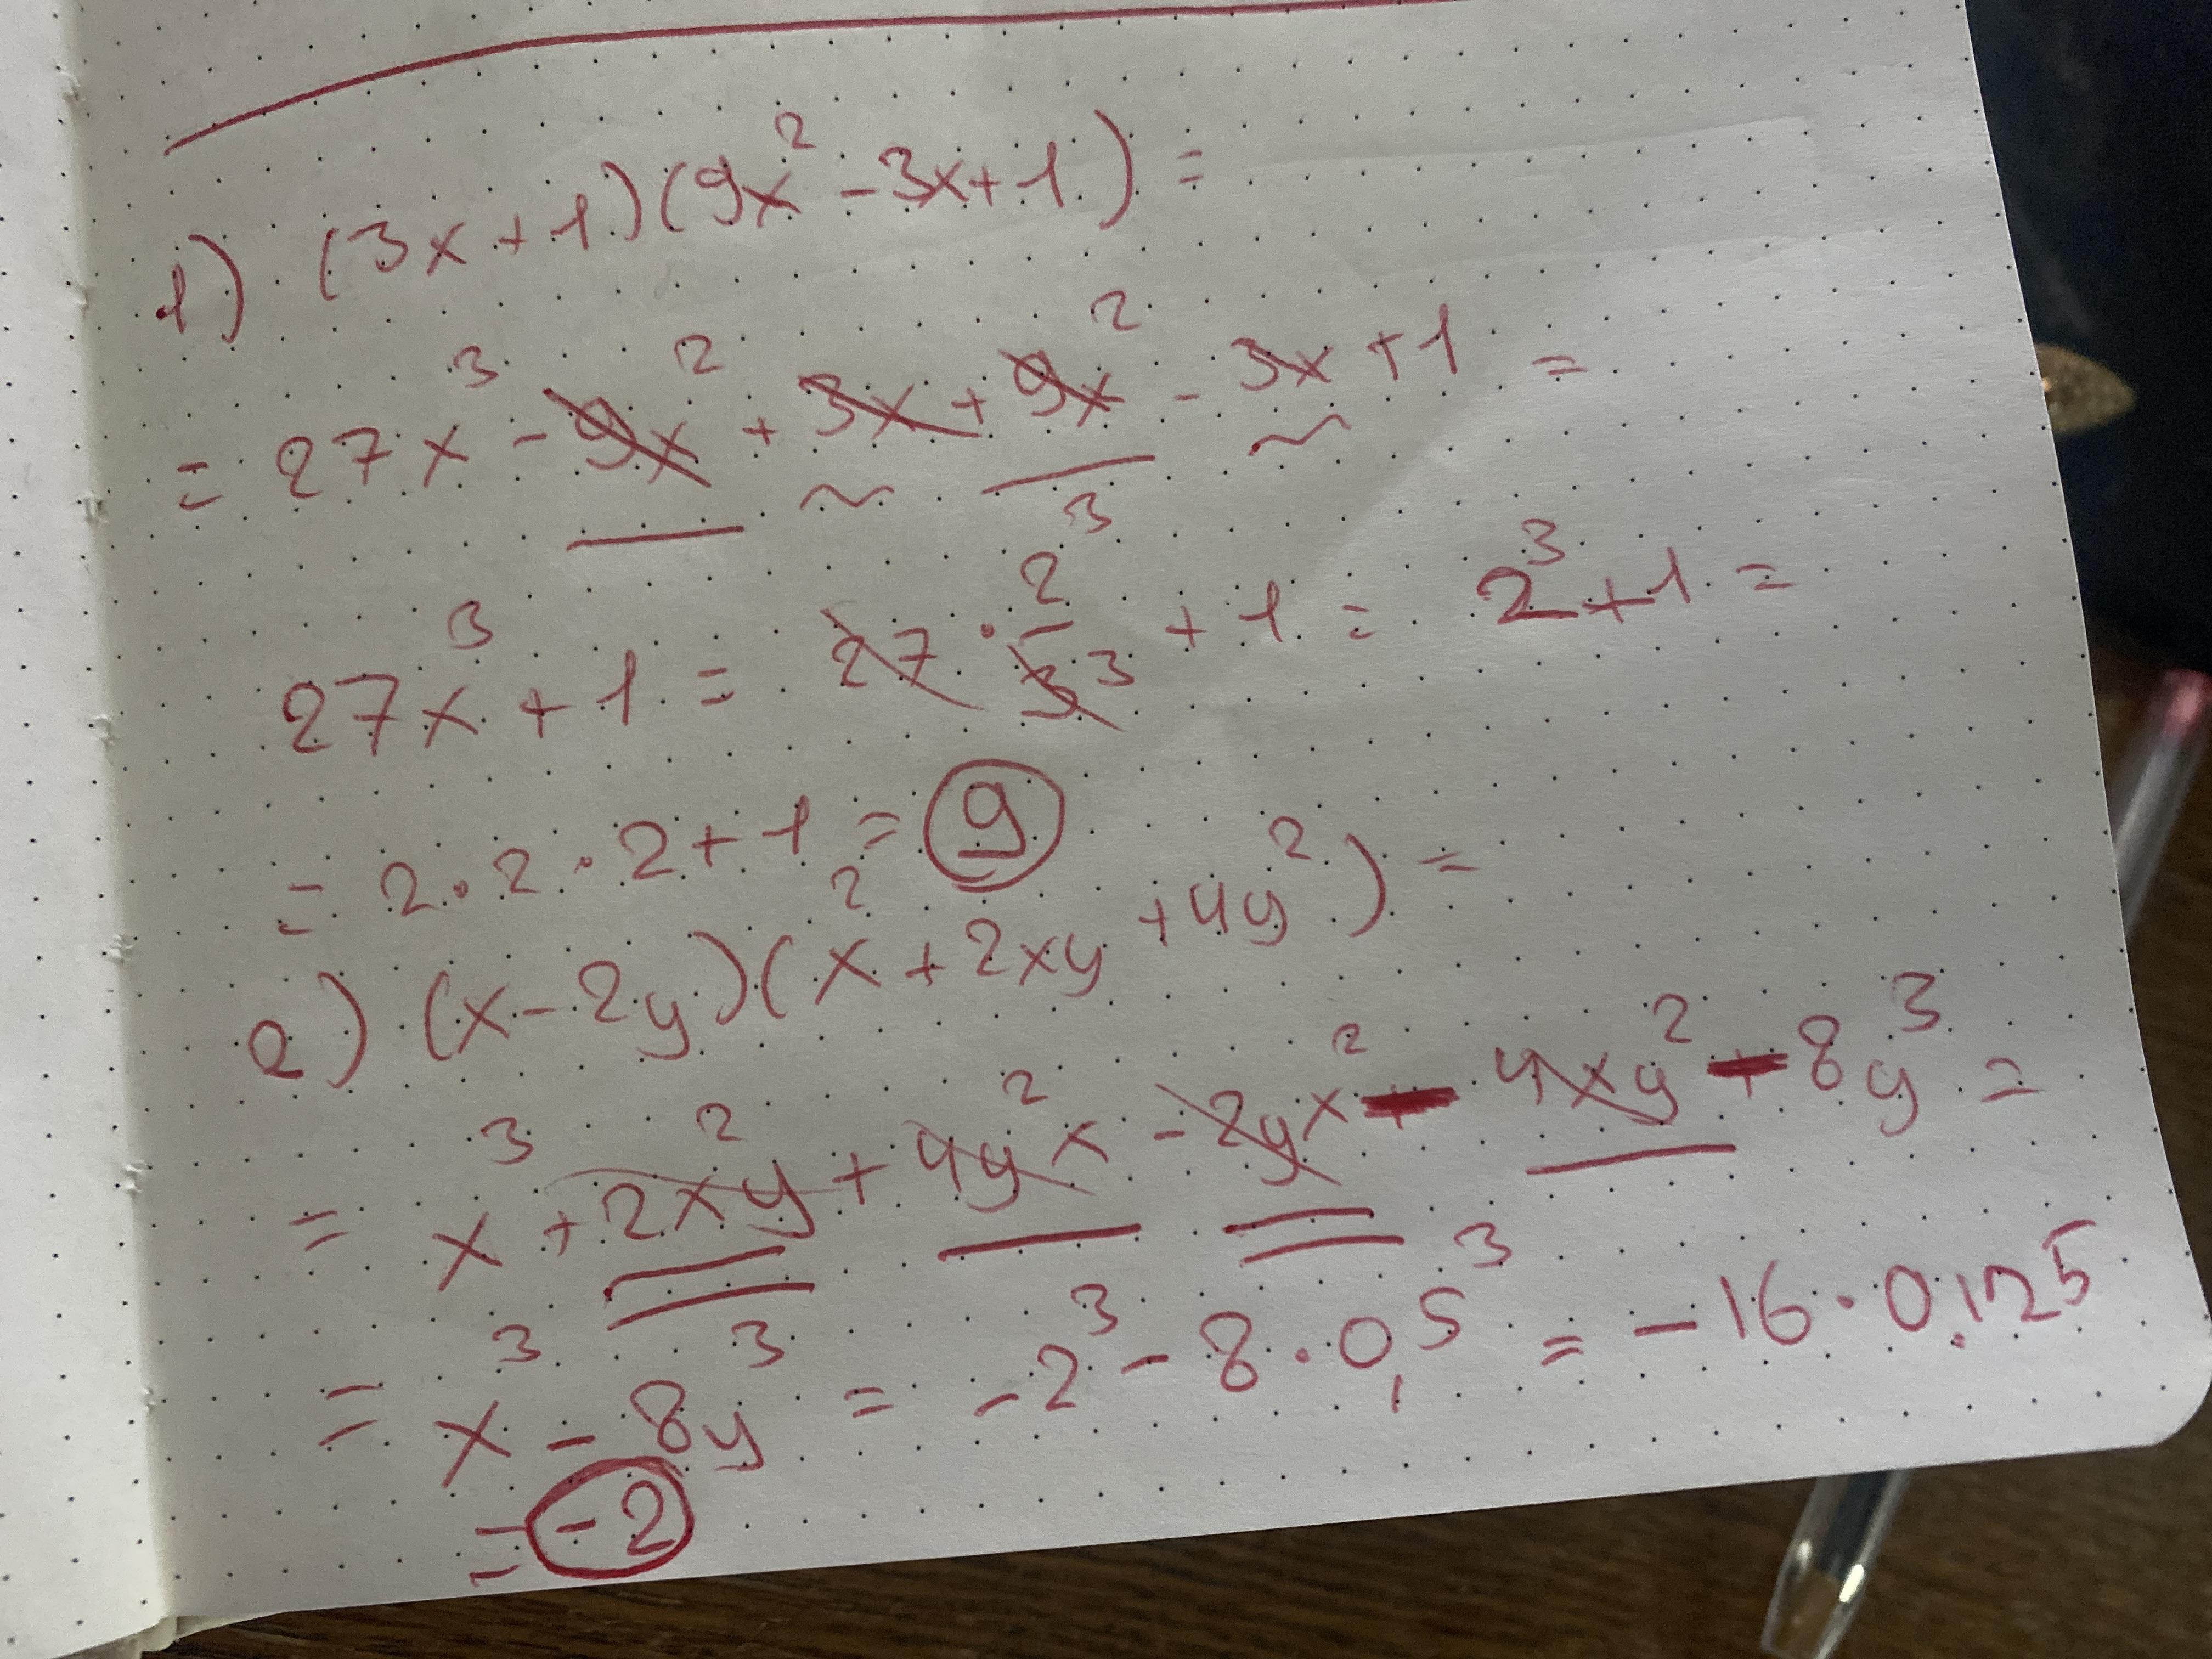 1) (3x+1)(9x²-3x+1)=
= 27x³ - 9x² + 3x + 9x² - 3x + 1 =
27x³ + 1 = 27 · 2³/3³ + 1 = 2³+1 =
= 2·2·2+1 = 9
2) (x-2y)(x²+2xy+4y²)=
= x³ + 2x²y + 4y²x - 2yx² - 4xy² - 8y³ =
= x³ - 8y³ = -2³ - 8·0,5³ = -16·0,125
= -2